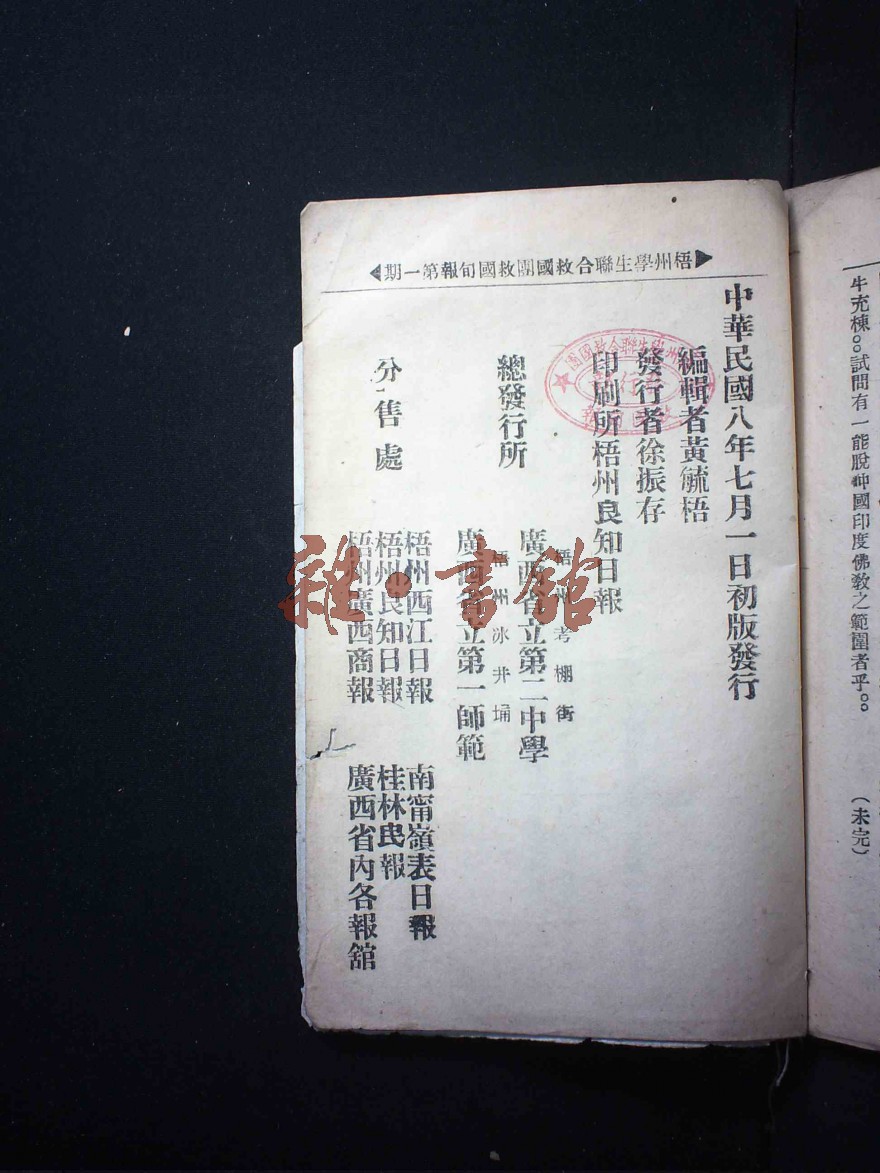 牛充棟○○試問有一能脫神國印度佛教之範圍者乎○○
(未完)
梧州學生聯合救國團救國旬報第一期
中華民國八年七月一日初版發行
編輯者黃毓梧
發行者徐振存
印刷所梧州良知日報
總發行所
梧州考棚街
廣西省立第二中學
梧州冰井埇
廣西省立第一師範
分售處
梧州西江日報
南甯嶺表日報
梧州良知日報
桂林民報
梧州廣西商報
廣西省內各報館
雜·書館